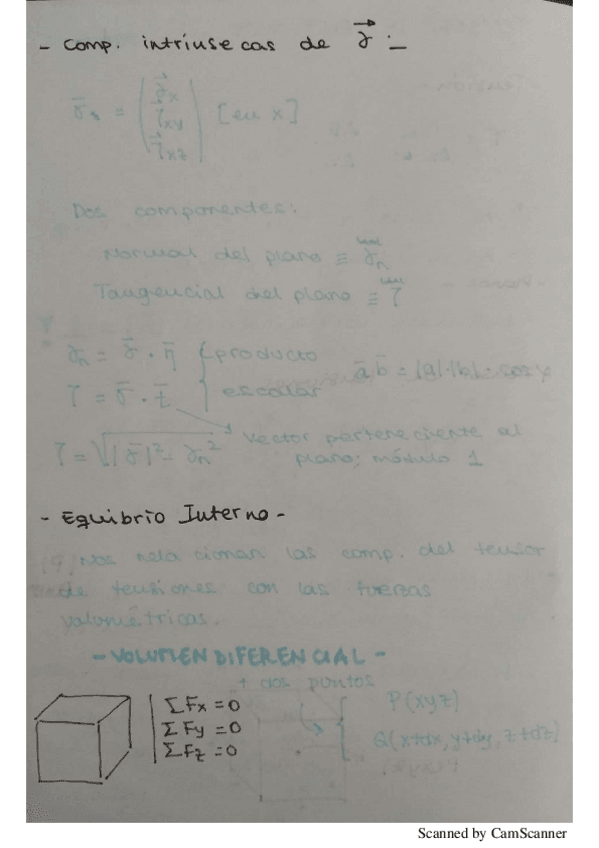 - Comp. intrínsecas de σ⃗ :-
σ̄x = (σ⃗x τ⃗xy τ⃗xz) [en x]
Dos componentes:
Normal del plano ≡ σn
Tangencial del plano ≡ τ
σn = σ̄ · n̄ { producto
τ = σ̄ · t̄ { escalar
ā b̄ = |a|·|b|· cos γ
τ = √|σ̄|² - σn²
vector perteneciente al
plano; módulo 1
- Equibrio Interno -
Nos relacionan las comp. del tensor
de tensiones con las fuerzas
volumétricas.
- VOLUMEN DIFERENCIAL -
+ dos puntos
ΣFx = 0
ΣFy = 0
ΣFz = 0
P(xyz)
Q(x+dx, y+dy, z+dz)
Scanned by CamScanner